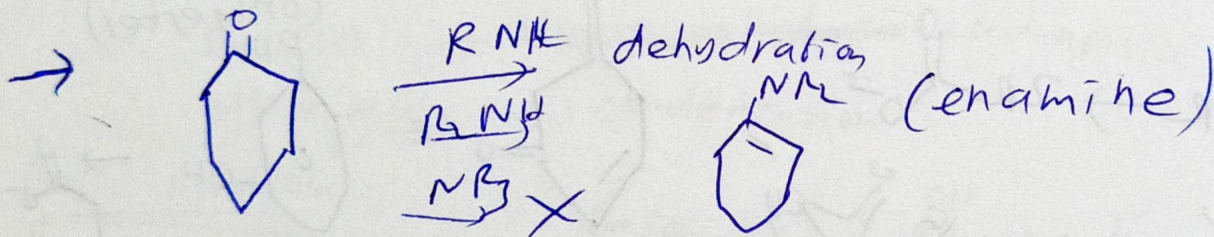 → O R NH₂ dehydration
R₂NH NR₂ (enamine)
NR₃ X